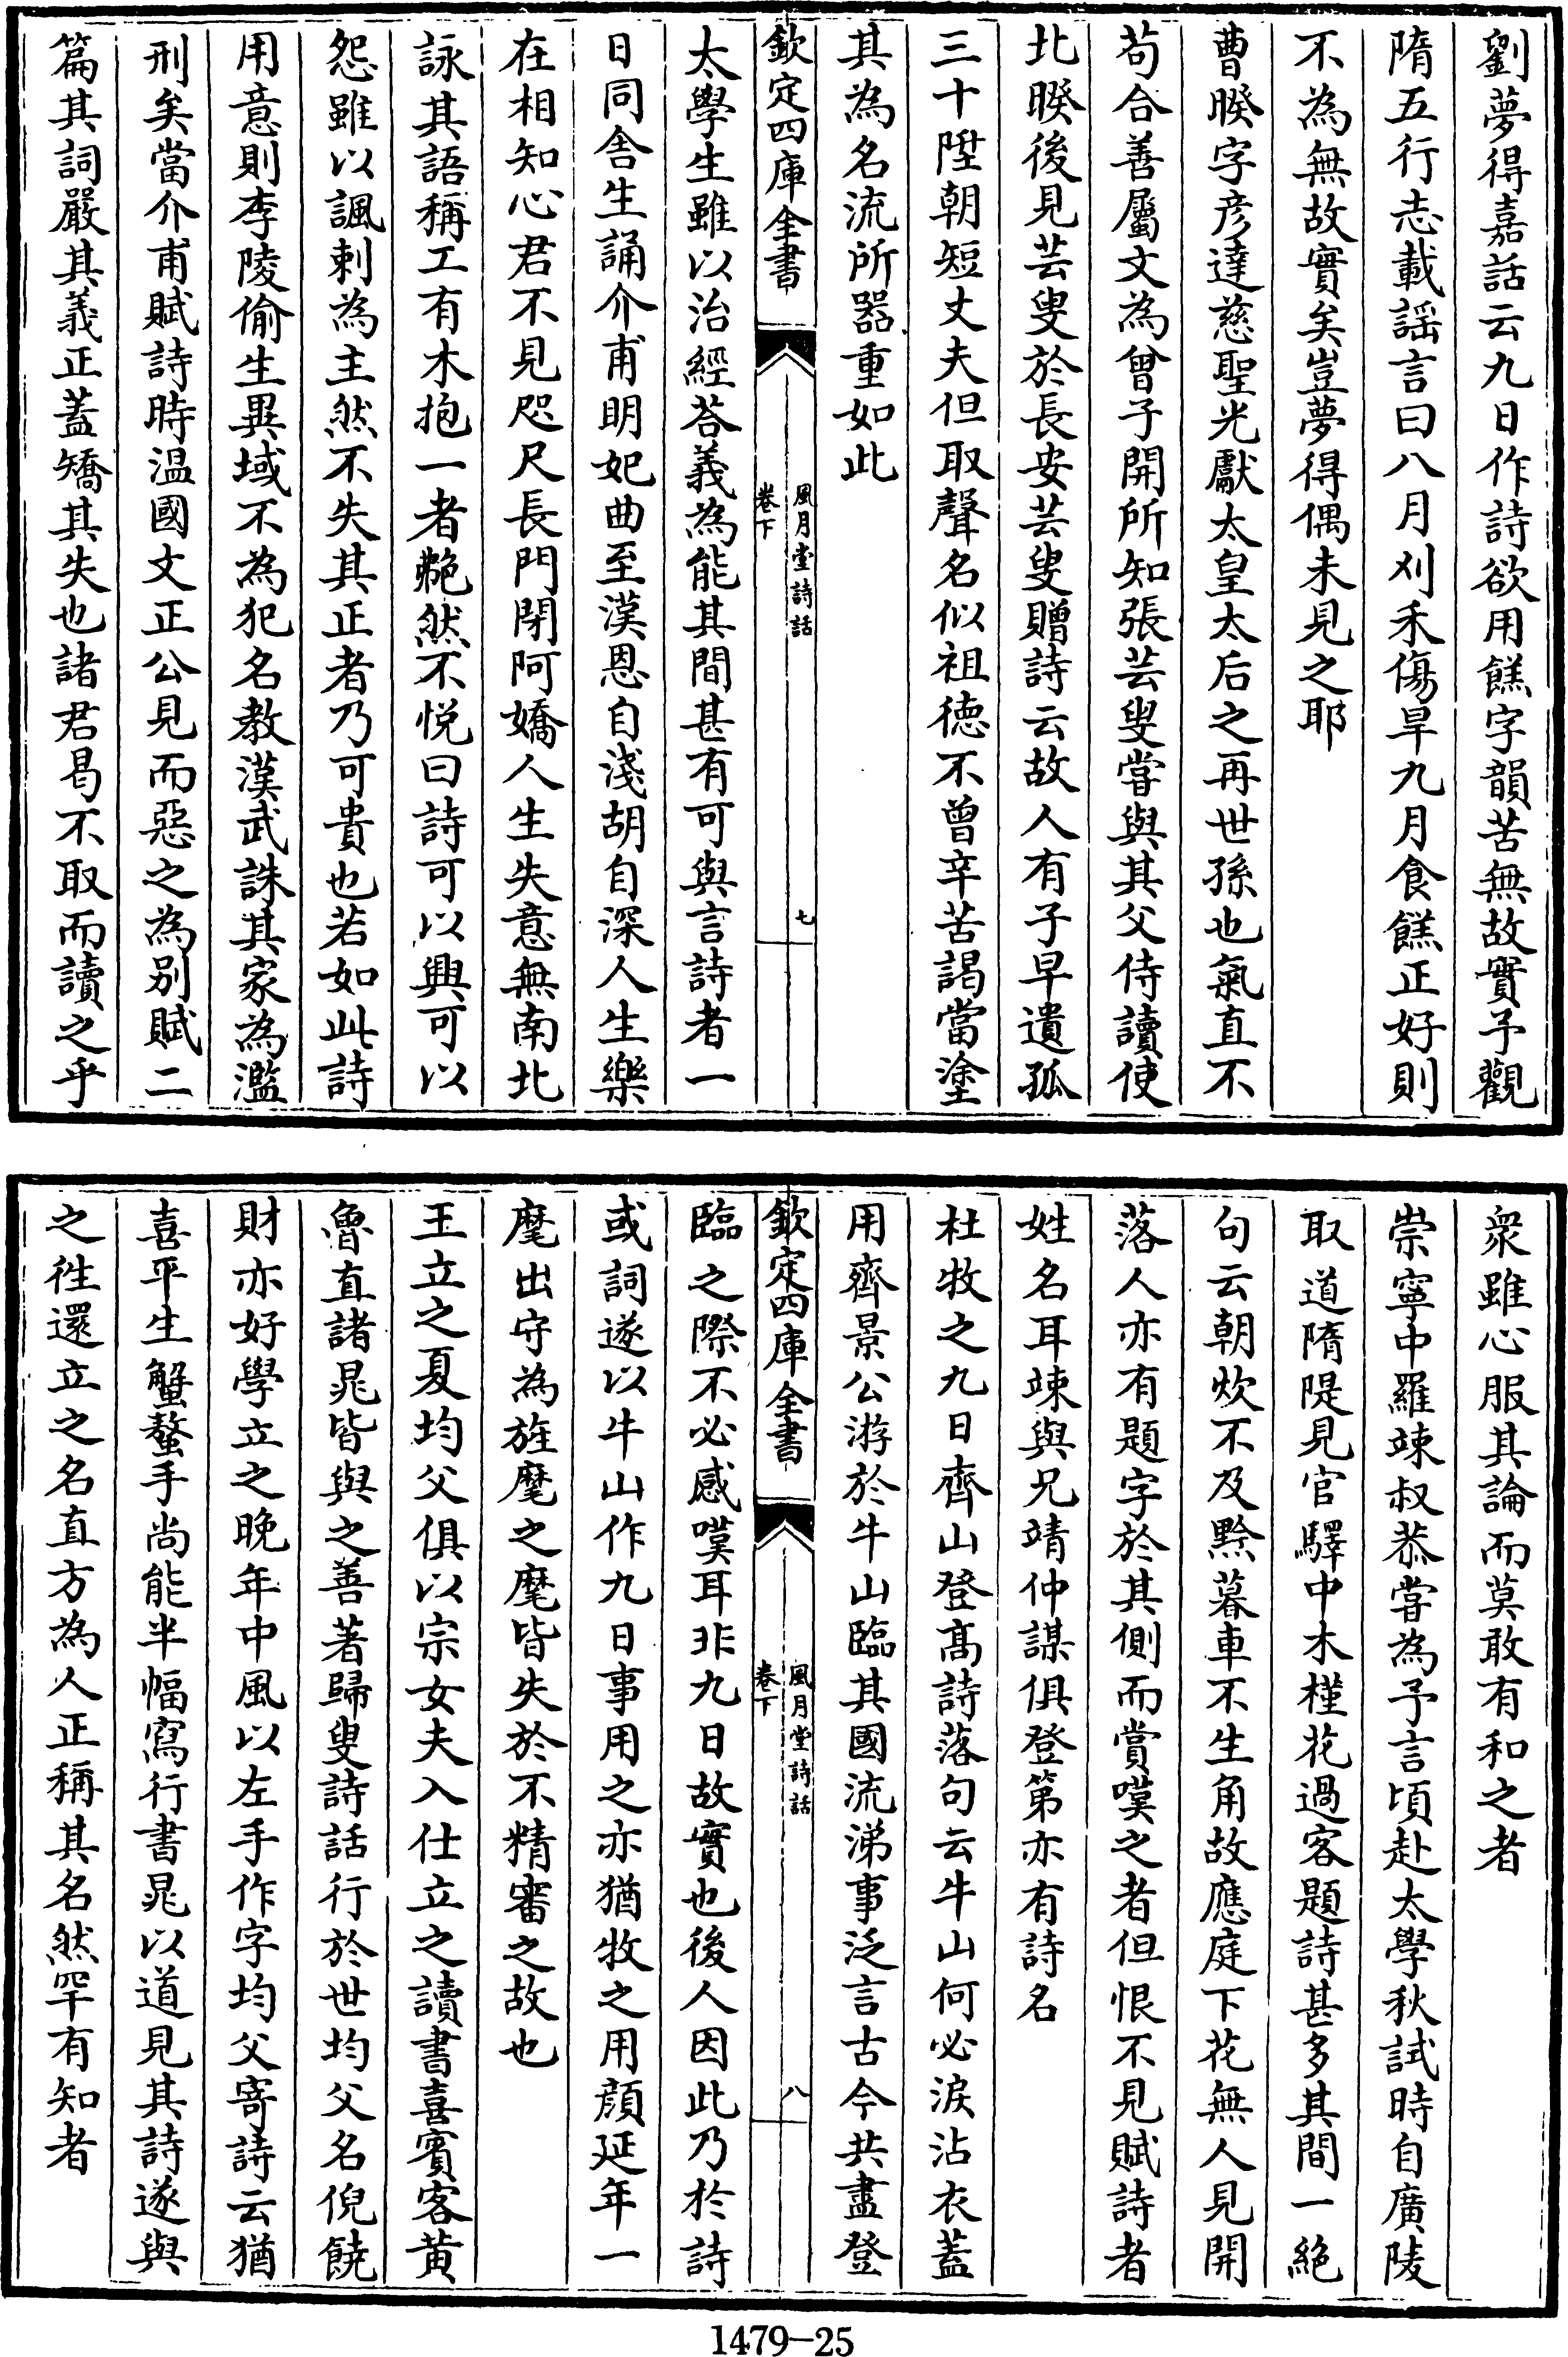 劉夢得嘉話云九日作詩欲用餻字韻苦無故實予觀
隋五行志載謡言曰八月刈禾傷早九月食餻正好則
不為無故實矣豈夢得偶未見之耶
曹睽字彦達慈聖光獻太皇太后之再世孫也氣直不
苟合善屬文為曾子開所知張芸叟嘗與其父侍讀使
北睽後見芸叟於長安芸叟贈詩云故人有子早遺孤
三十陞朝短丈夫但取聲名似祖德不曾辛苦謁當塗
其為名流所器重如此
欽定四庫全書
風月堂詩話
卷下
七
太學生雖以治經荅義為能其間甚有可與言詩者一
日同舍生誦介甫明妃曲至漢恩自淺胡自深人生樂
在相知心君不見咫尺長門閉阿嬌人生失意無南北
詠其語稱工有木抱一者艴然不悅曰詩可以興可以
怨雖以諷刺為主然不失其正者乃可貴也若如此詩
用意則李陵偷生異域不為犯名教漢武誅其家為濫
刑矣當介甫賦詩時温國文正公見而惡之為別賦二
篇其詞嚴其義正蓋矯其失也諸君曷不取而讀之乎
衆雖心服其論而莫敢有和之者
崇寧中羅竦叔恭嘗為予言頃赴太學秋試時自廣陵
取道隋隄見官驛中木槿花過客題詩甚多其間一絕
句云朝炊不及黔暮車不生角故應庭下花無人見開
落人亦有題字於其側而賞嘆之者但恨不見賦詩者
姓名耳竦與兄靖仲謀俱登第亦有詩名
杜牧之九日齊山登髙詩落句云牛山何必淚沾衣蓋
用齊景公游於牛山臨其國流涕事泛言古今共盡登
欽定四庫全書
風月堂詩話
卷下
八
臨之際不必感嘆耳非九日故實也後人因此乃於詩
或詞遂以牛山作九日事用之亦猶牧之用顔延年一
麾出守為旌麾之麾皆失於不精審之故也
王立之夏均父俱以宗女夫入仕立之讀書喜賓客黄
魯直諸晁皆與之善著歸叟詩話行於世均父名倪饒
財亦好學立之晚年中風以左手作字均父寄詩云猶
喜平生蟹螯手尚能半幅寫行書晁以道見其詩遂與
之徃還立之名直方為人正稱其名然罕有知者
1479-25